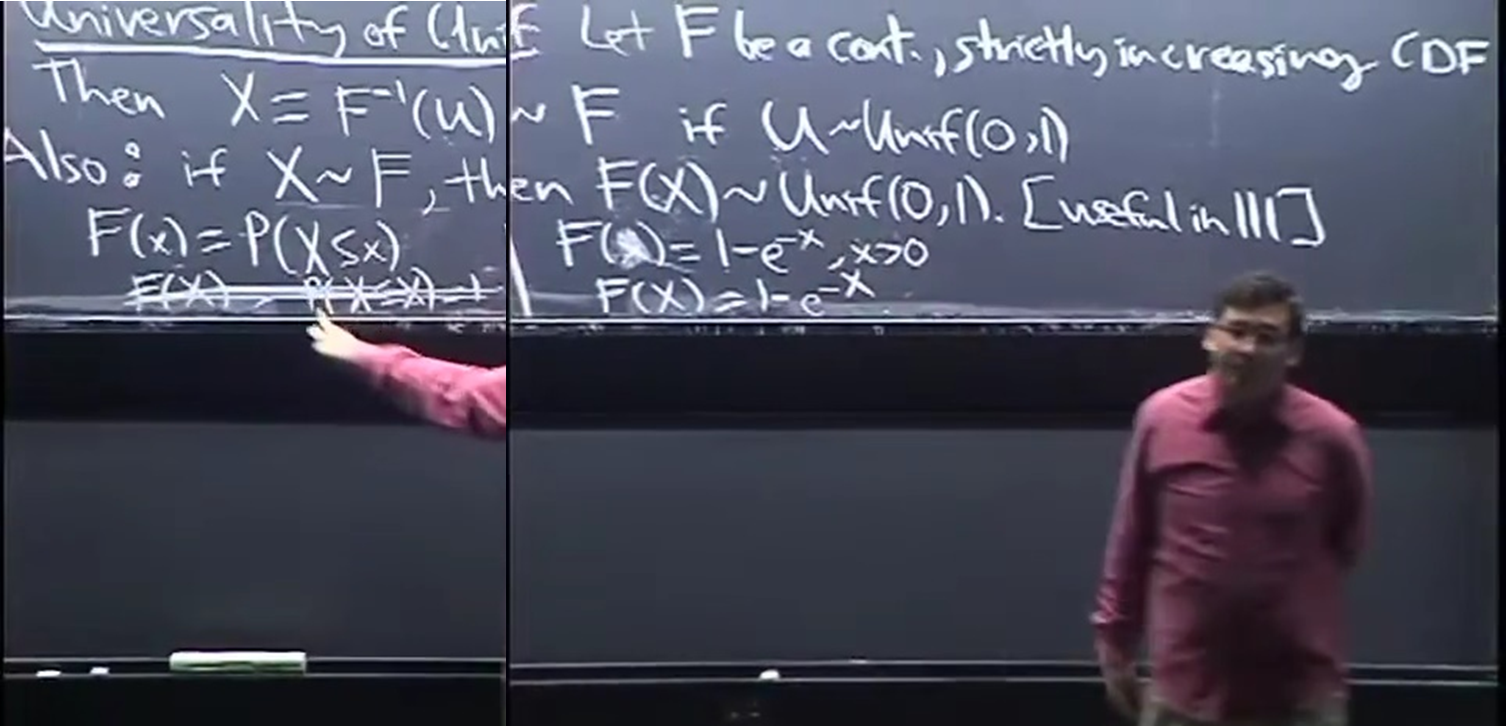 Universality of Unif Let F be a cont., strictly increasing CDF
Then X ≡ F⁻¹(U) ~ F if U ~ Unif(0,1)
Also: if X ~ F, then F(X) ~ Unif(0,1). [useful in 111]
F(x) = P(X ≤ x) | F(x) = 1-e^{-x}, x>0
F(X) = P(X ≤ X) = 1 | F(X) = 1-e^{-X}